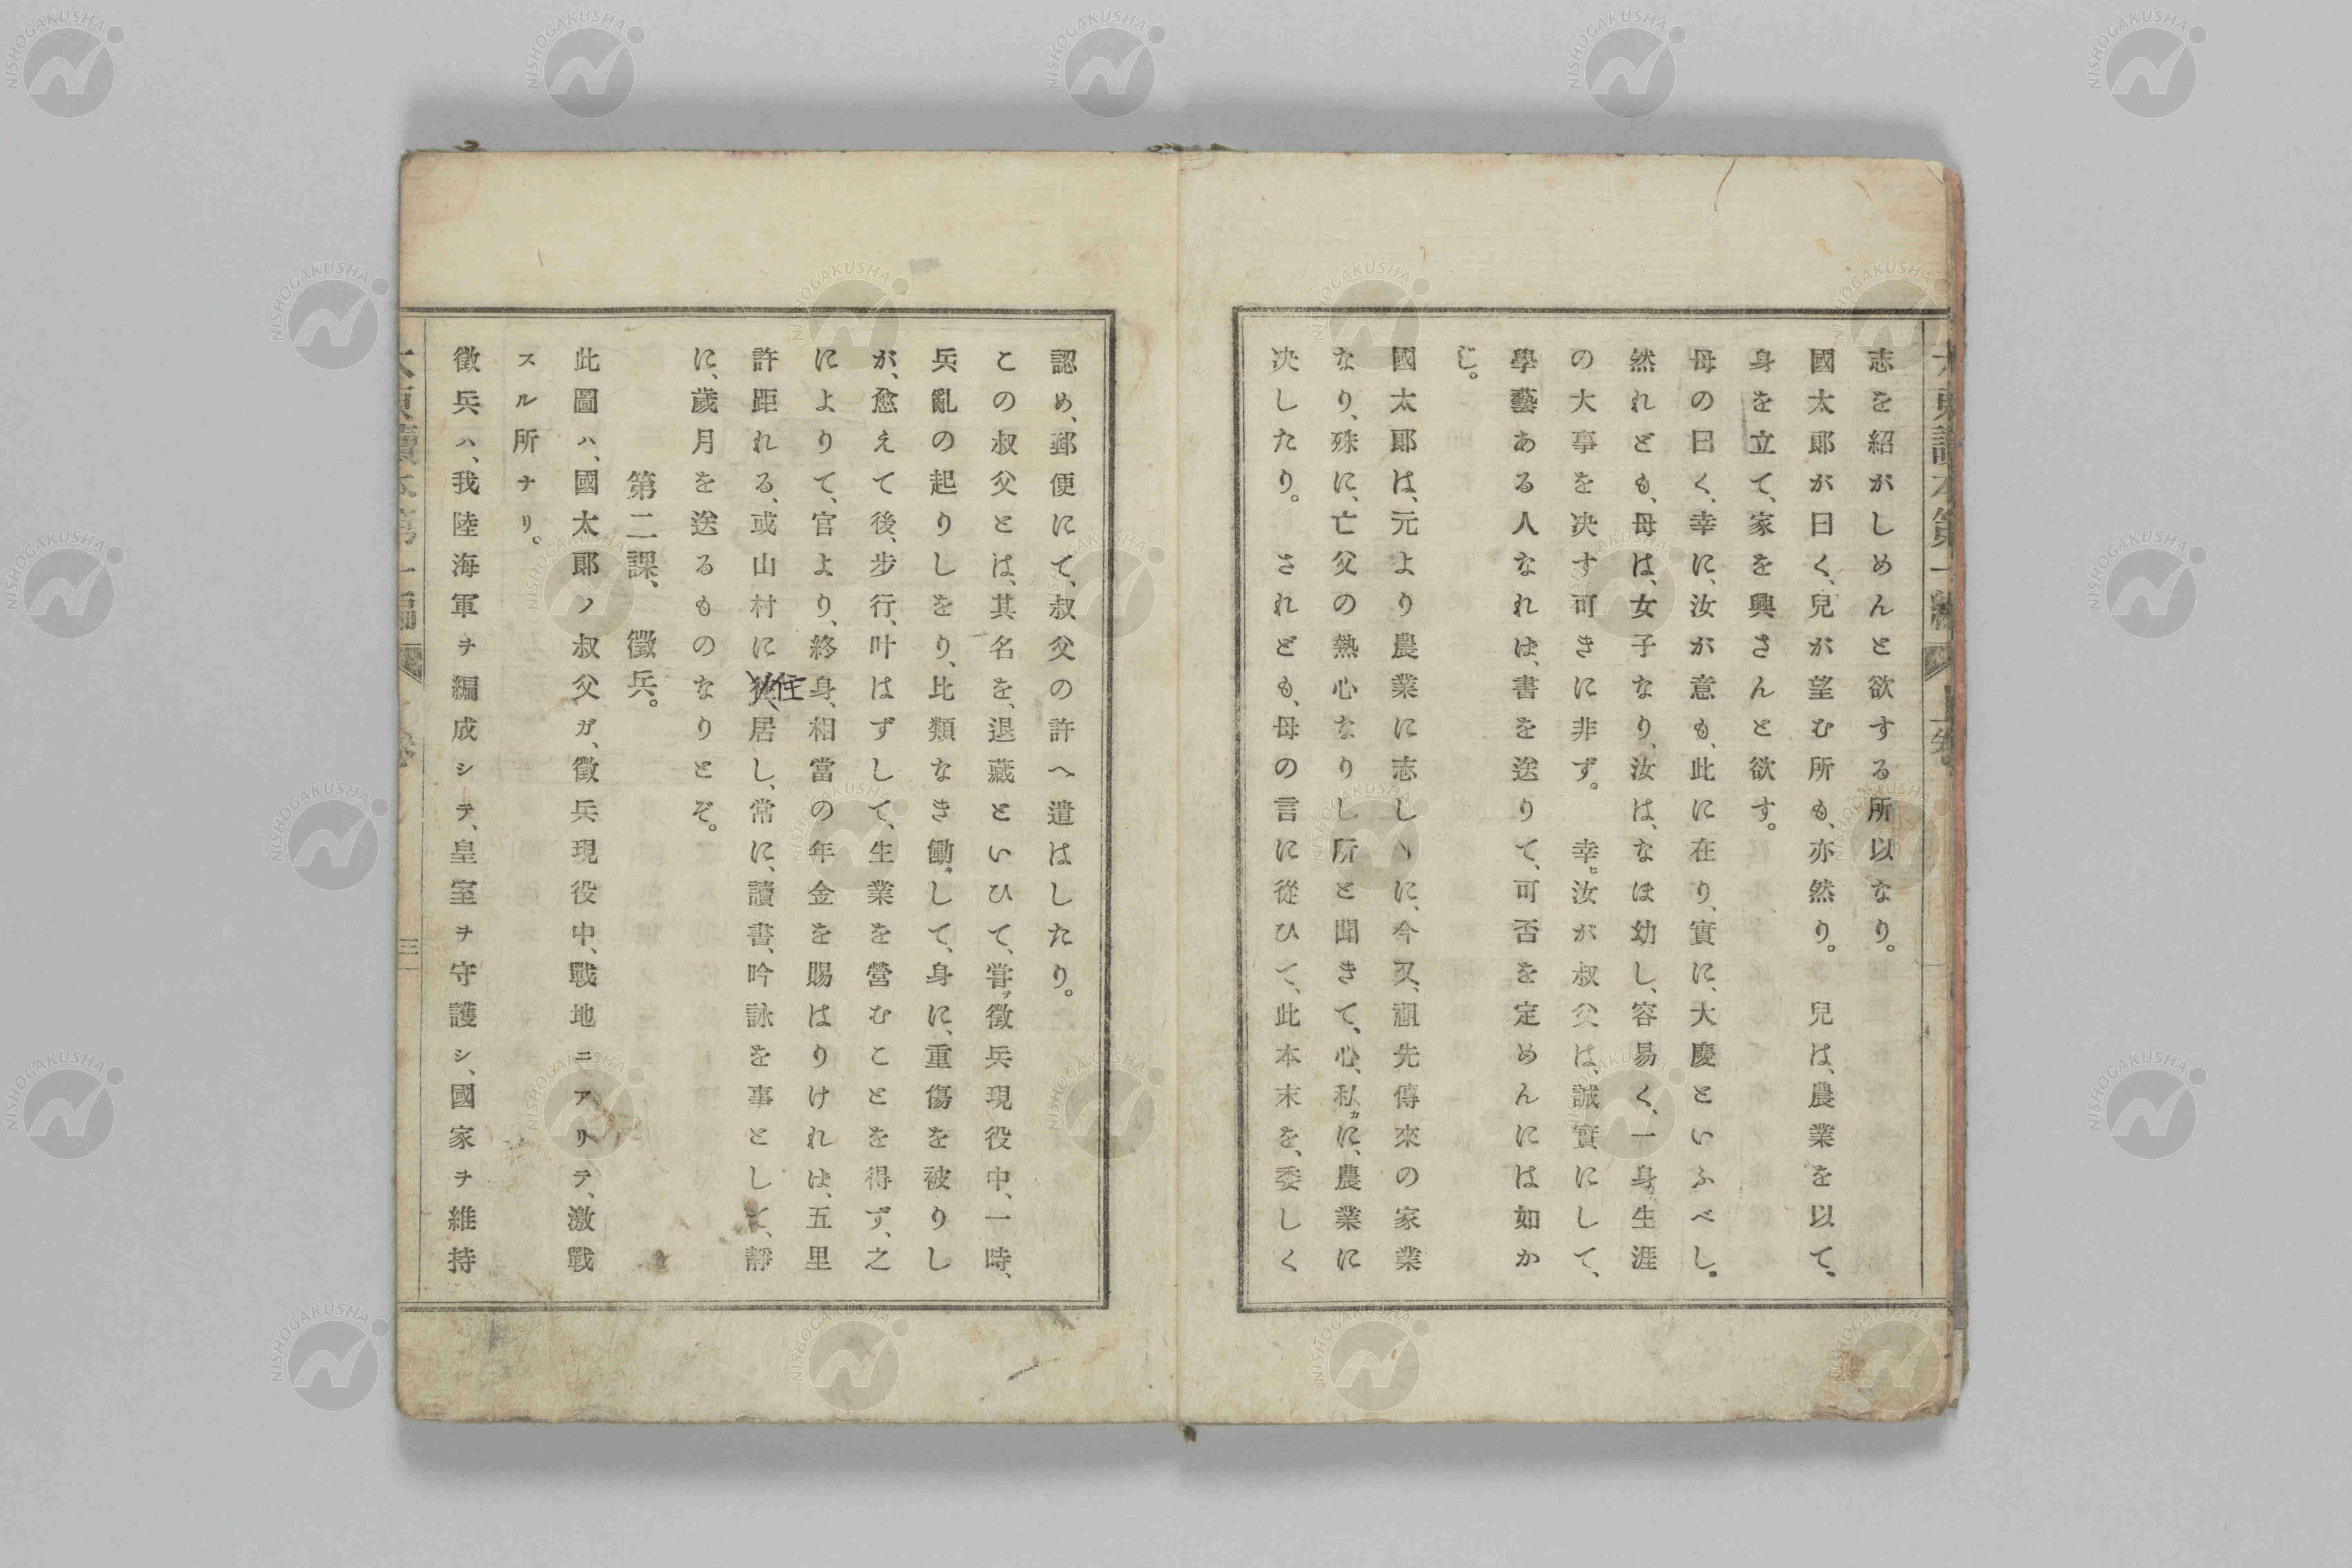 志を紹がしめんと欲する所以なり。
國太郎が曰く、兒が望む所も、亦然り。 兒は、農業を以て、
身を立て、家を興さんと欲す。
母の曰く、幸に、汝が意も、此に在り、實に、大慶といふべし。
然れども、母は、女子なり、汝は、なほ幼し、容易く、一身生涯
の大事を决す可きに非ず。 幸ヒ汝が叔父は、誠實にして、
學藝ある人なれは、書を送りて、可否を定めんには如か
じ。
國太郎は、元より農業に志しゝに、今又、祖先傳來の家業
なり、殊に、亡父の熱心なりし所と聞きて、心、私カに、農業に
决したり。 されども、母の言に從ひて、此本末を、委しく
認め、郵便にて、叔父の許へ遣はしたり。
この叔父とは、其名を、退藏といひて、嘗テ徴兵現役中、一時、
兵亂の起りしをり、比類なき働キして、身に、重傷を被りし
が、愈えて後、步行、叶はずして、生業を營むことを得ず、之
によりて、官より、終身、相當の年金を賜はりけれは、五里
許距れる、或山村に住居し、常に、讀書、吟詠を事として、靜
に、歲月を送るものなりとぞ。
第二課、 徴兵。
此圖ハ、國太郎ノ叔父ガ、徴兵現役中、戰地ニアリテ、激戰
スル所ナリ。
徴兵ハ、我陸海軍ヲ編成シテ、皇室ヲ守護シ、國家ヲ維持
三
NISHOGAKUSHA